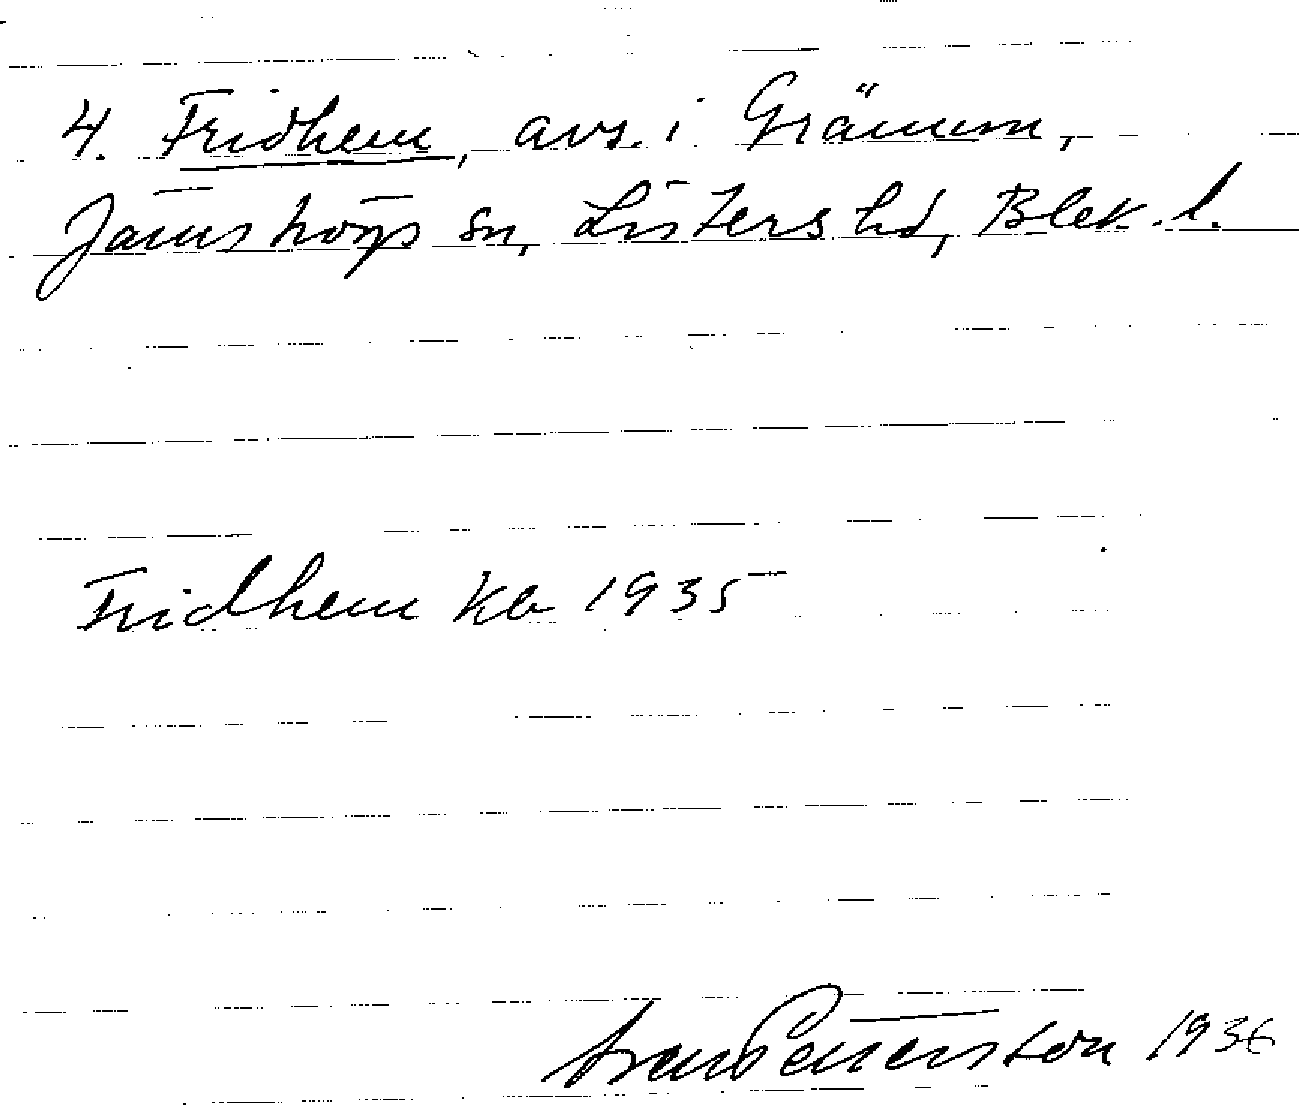 4. Fridhem, avs. i Gränum,
Jämshögs sn, Listers hd, Blek. l.
Fridhem kb 1935
Petterston 1936